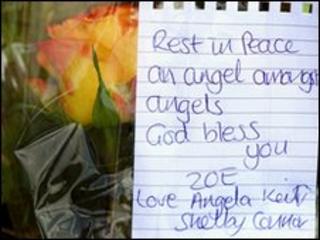 Rest in Peace
an angel amongst
angels
God bless
you
ZOE
Love Angela Keith
Shelley Connor